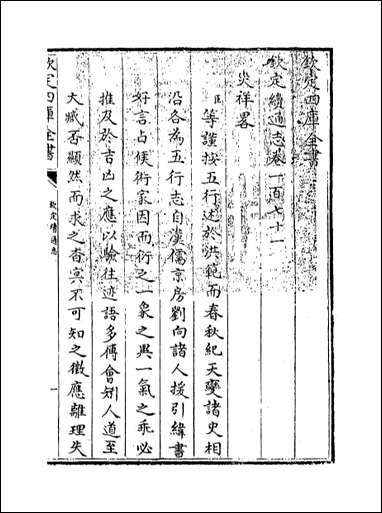 欽定四庫全書
欽定續通志卷一百七十一
災祥畧
臣等謹按五行述於洪範而春秋紀天變諸史相
沿各為五行志自漢儒京房劉向諸人援引緯書
好言占候術家因而衍之一象之異一氣之乖必
推及於吉凶之應以驗往迹語多傅會夫人道至
大臧否顯然而求之杳冥不可知之徵應離理失
欽定四庫全書
欽定續通志
一